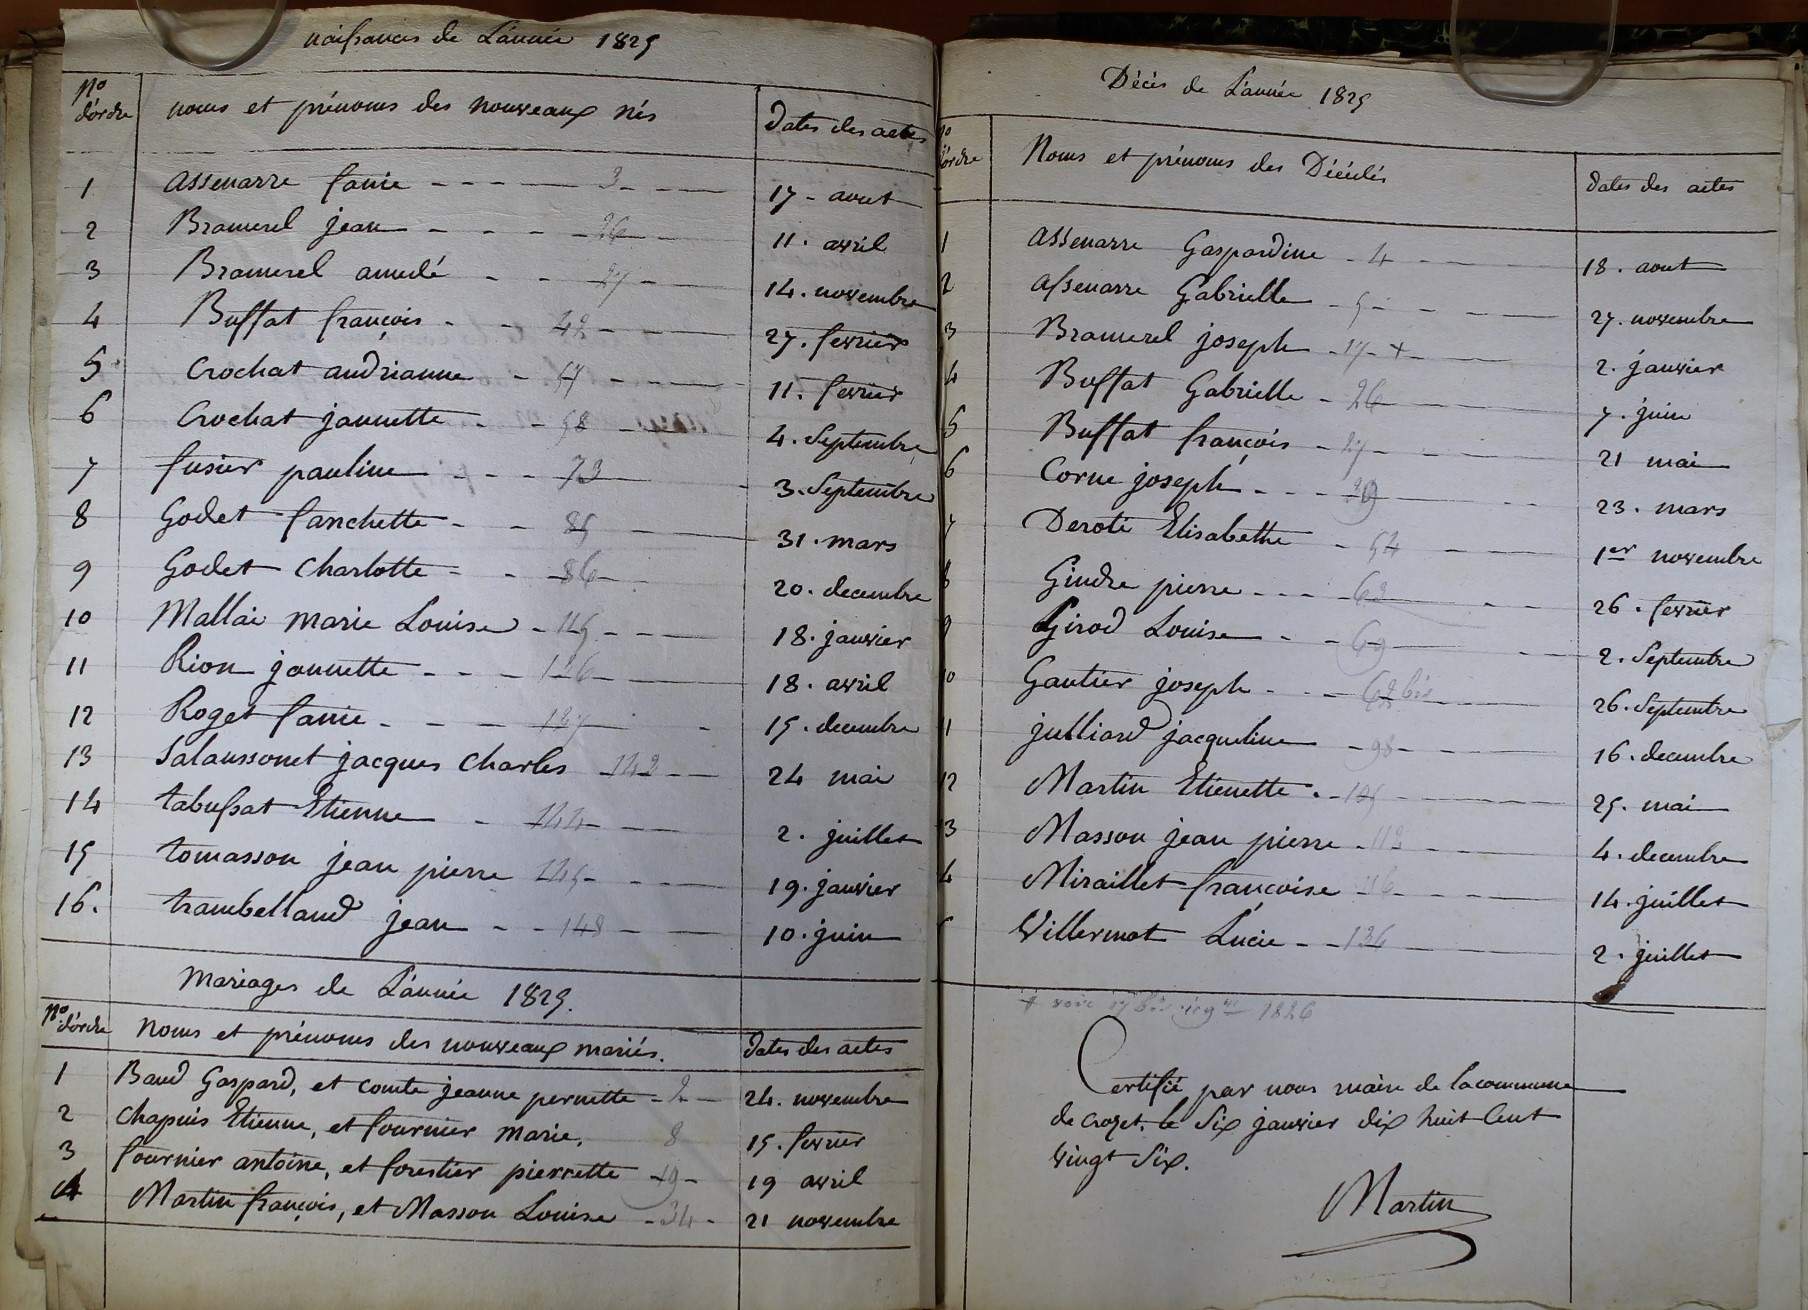 naissances de L'année 1825
No d'ordre noms et prénoms des nouveaux nés dates des actes
1 assenarre fanie 3 17 - aout
2 Bramerel jean 26 11. avril
3 Bramerel amedé 27 14. novembre
4 Buffat françois 42 27. fevrier
5 Crochat andrianne 57 11. fevrier
6 Crochat jannette 58 4. Septembre
7 fusier pauline 73 3. Septembre
8 Godet fanchette 85 31. mars
9 Godet Charlotte 86 20. decembre
10 Mallai marie Louise 115 18. janvier
11 Rion jannette 126 18. avril
12 Roget fanie 127 15. decembre
13 Salaussonet jacques Charles 142 24 mai
14 tabussat Etienne 144 2. juillet
15 tomasson jean pierre 145 19. janvier
16. trambelland jean 148 10. juin
Mariages de L'année 1825.
No d'ordre Noms et prénoms des nouveaux mariés. dates des actes
1 Baud Gaspard, et comte jeanne pernette 2 24. novembre
2 Chapuis Etienne, et fournier Marie. 8 15. fevrier
3 fournier antoine, et forestier pierrette 19 19 avril
4 Martin françois, et Masson Louise 34 21 novembre
Décès de L'année 1825
No d'ordre Noms et prénoms des Décédés dates des actes
1 assenarre Gaspardine 4 18. aout
2 assenarre Gabrielle 5 27. novembre
3 Bramerel joseph 17 + 2. janvier
4 Buffat Gabrielle 26 7. juin
5 Buffat françois 27 21 mai
6 Corne joseph 23. mars
7 Deroti Elisabethe 54 1er novembre
8 Gindre pierre 62 26. fevrier
9 Girod Louise 69 2. Septembre
10 Gautier joseph 62 bis 26. Septembre
11 julliard jacqueline 98 16. decembre
12 Martin Etienette 105 25. mai
3 Masson jean pierre 112 4. decembre
4 Miraillet françoise 116 14. juillet
5 Villermot Lucie 136 2. juillet
+ voir 17 bis 1826
Certifié par nous maire de la commune
de crozet. le Six janvier dix huit Cent
vingt Six.
Martin